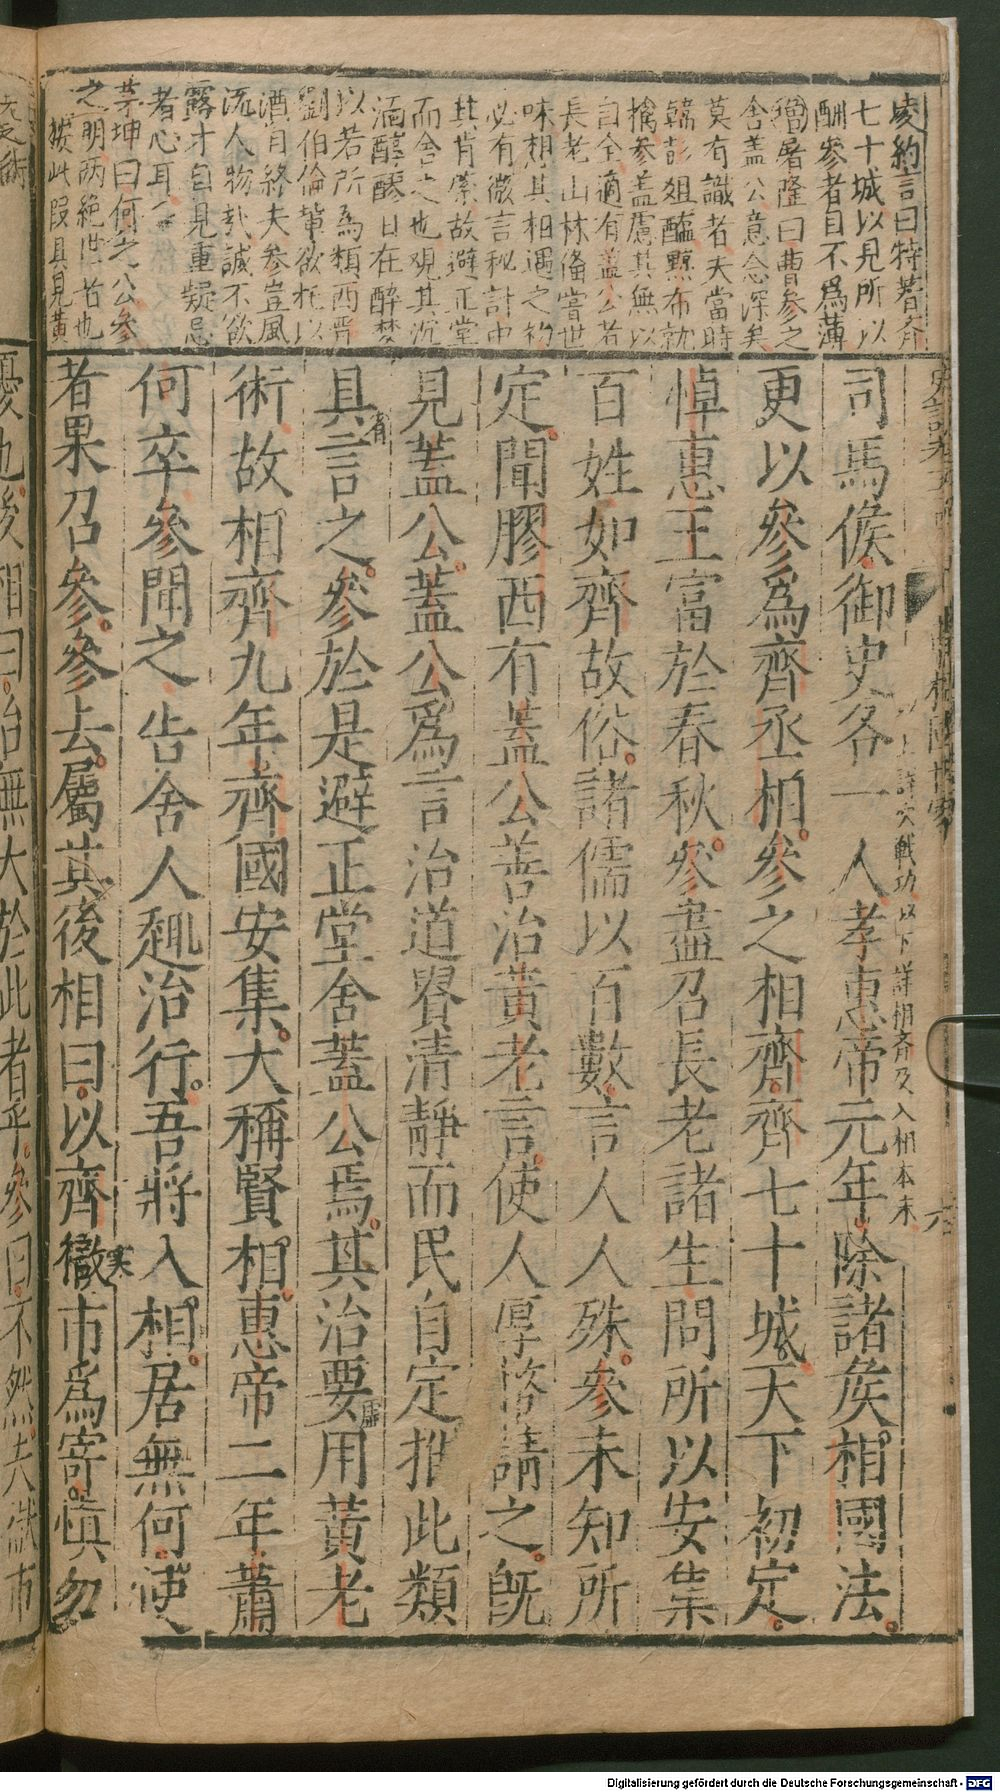 凌約言曰特著齊
七十城以見所以
酬參者自不爲薄
增屠隆曰曹參之
舍蓋公意念深矣
莫有識者夫當時
韓彭俎醢黥布就
擒參蓋慮其無以
自全適有蓋公者
長老山林備嘗世
味想其相遇之初
必有微言秘計中
其肯綮故避正堂
而舍之也觀其沉
湎醇醪日在醉梦
以若所爲類西晋
劉伯倫輩欲托以
酒自終夫參豈風
流人物哉誠不欲
露才自見重疑忌
者心耳
茅坤曰何之公參
之明兩絶世者也
按此叚具見黃
史記卷五
曹相國世家
以上詳次戰功以下詳相齊及入相本末
六
司馬侯御史各一人孝惠帝元年除諸矦相國法
更以參爲齊丞相參之相齊齊七十城天下初定
悼惠王富於春秋參盡召長老諸生問所以安集
百姓如齊故俗諸儒以百數言人人殊參未知所
定聞膠西有蓋公善治黃老言使人厚幣請之既
見蓋公蓋公爲言治道貴清靜而民自定推此類
具言之參於是避正堂舍蓋公焉其治要用黃老
術故相齊九年齊國安集大稱賢相惠帝二年蕭
何卒參聞之告舍人趣治行吾將入相居無何使
者果召參參去屬其後相曰以齊獄市爲寄慎勿
擾也後相曰治無大於此者乎參曰不然夫獄市
Digitalisierung gefördert durch die Deutsche Forschungsgemeinschaft - DFG